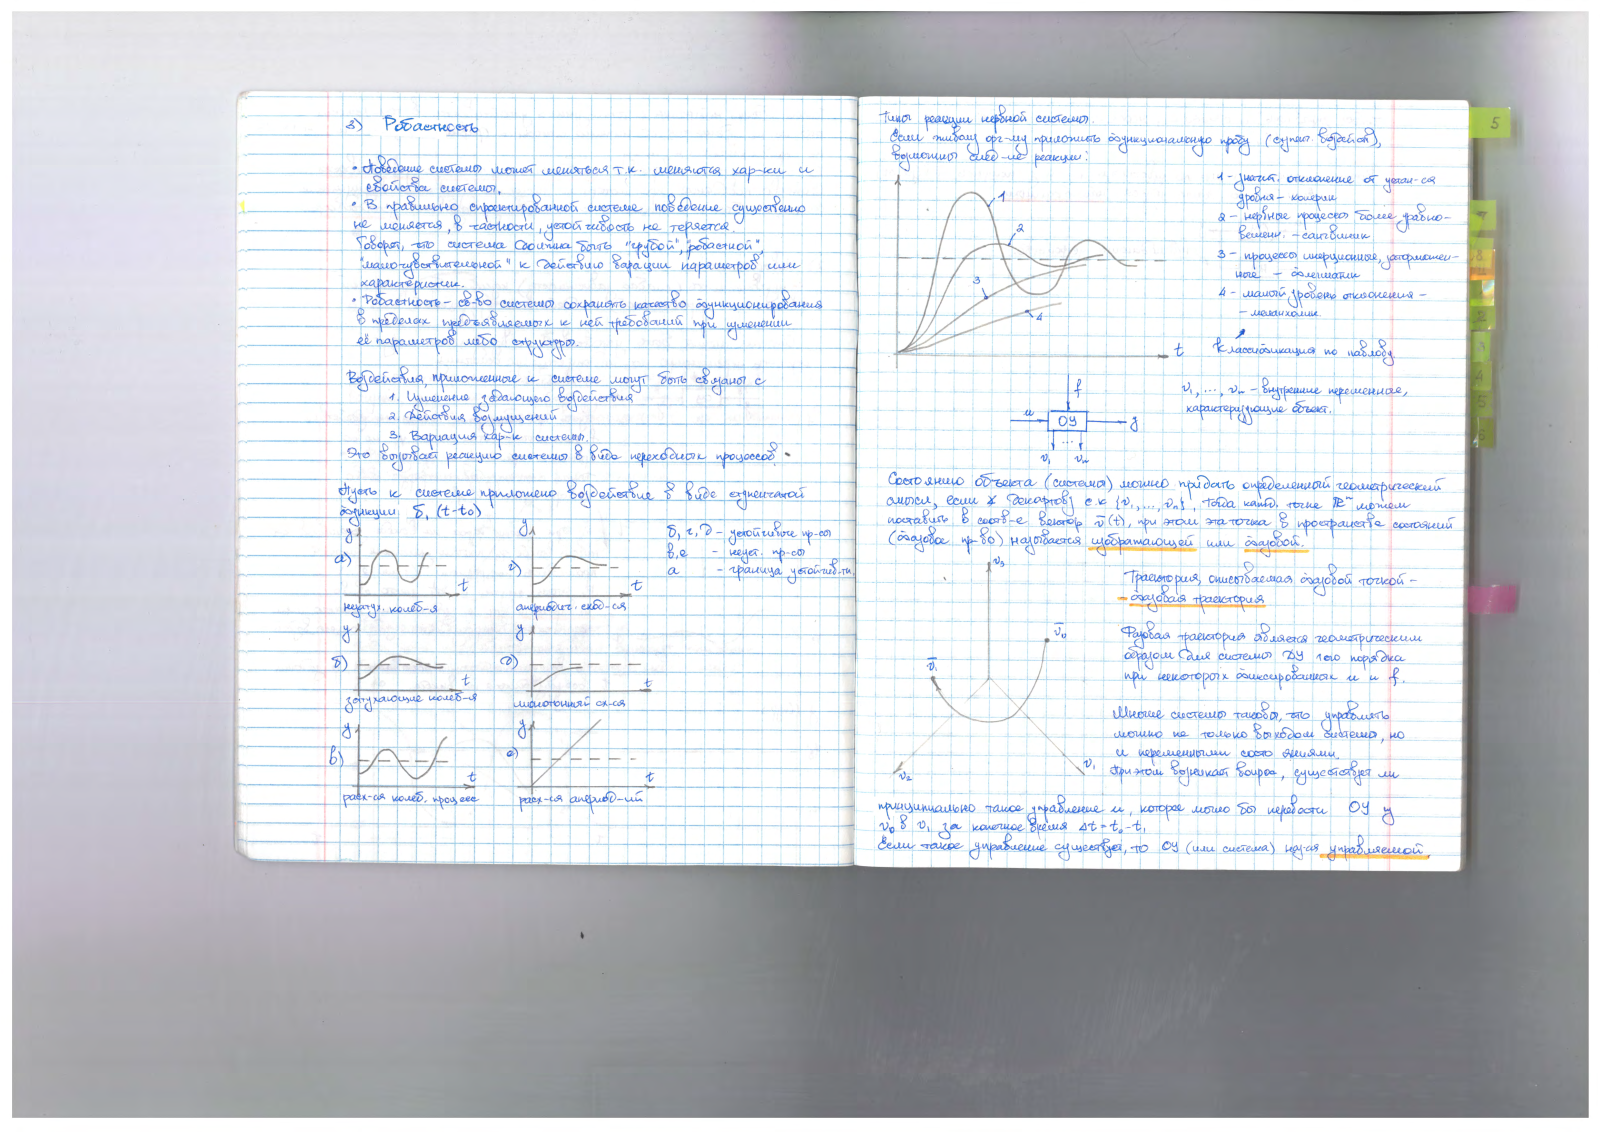 3) Робастность
• Поведение системы может меняться т.к. меняются хар-ки и
свойства системы.
• В правильно спроектированной системе поведение существенно
не меняется, в частности, устойчивость не теряется.
Говорят, что система должна быть "грубой", "робастной",
"малочувствительной" к действию вариации параметров или
характеристик.
• Робастность - св-во системы сохранять качество функционирования
в пределах предъявляемых к ней требований при изменении
её параметров либо структуры.
Воздействия, приложенные к системе могут быть связаны с
1. Изменение задающего воздействия
2. Действия возмущений
3. Вариация хар-к системы.
Это вызывает реакцию системы в виде переходных процессов.
Пусть к системе приложено воздействие в виде ступенчатой
функции δ₁(t-t₀)
y
а)
t
незатух. колеб-я
y
г)
t
апериодич. сход-ся
б, г, д - устойчивые пр-сы
в, е - неуст. пр-сы
а - граница устойчив-ти.
y
б)
t
затухающие колеб-я
y
д)
t
монотонный сх-ся
y
в)
t
расх-ся колеб. процесс
y
е)
t
расх-ся апериод-ий
Типы реакции нервной системы.
Если живому орг-му приложить функциональную пробу (ступ. воздейст.),
возможны след-ие реакции:
1
2
3
4
t
1 - значит. отклонение от устан-ся
уровня - холерик
2 - нервные процессы более уравно-
вешенн. - сангвиник
3 - процессы инерционные, заторможен-
ные - флегматик
4 - малый уровень отклонения -
- меланхолик.
Классификация по Павлову
f
u
ОУ
y
...
v₁ vₙ
v₁, ..., vₙ - внутренние переменные,
характеризующие объект.
Состоянию объекта (системы) можно придать определенный геометрический
смысл, если ∀ декартов с.к {v₁, ..., vₙ}, тогда кажд. точке ℝⁿ можем
поставить в соотв-е вектор v̄(t), при этом эта точка в пространстве состояний
(фазовое пр-во) называется изображающей или фазовой.
v₃
v̄₀
v̄₁
v₂
v₁
Траектория, описываемая фазовой точкой -
- фазовая траектория
Фазовая траектория является геометрическим
образом для системы ДУ 1ого порядка
при некоторых фиксированных u и f.
Многие системы таковы, что управлять
можно не только выходом системы, но
и переменными состояниями.
При этом возникает вопрос, существует ли
принципиально такое управление u, которое могло бы перевести ОУ у
v₀ в v₁ за конечное время Δt = t₀ - t₁
Если такое управление существует, то ОУ (или система) наз-ся управляемой
5